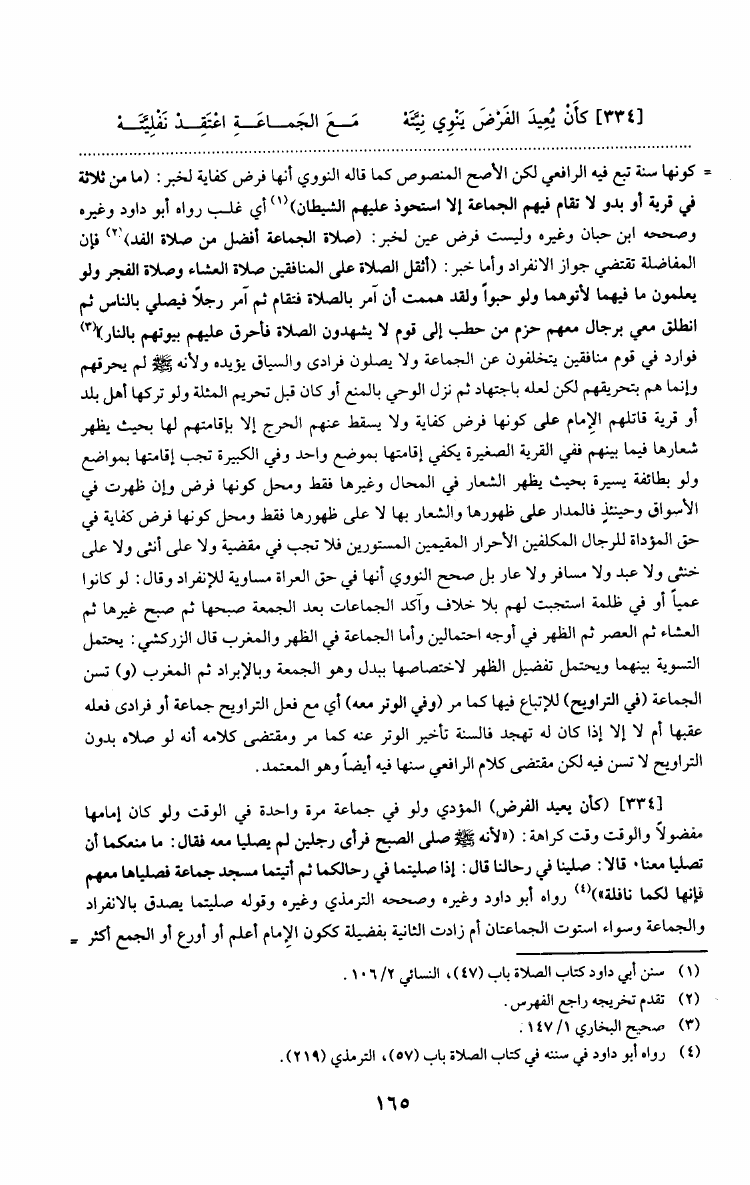 [٣٣٤] كَأَنْ يُعِيدَ الفَرْضَ يَنْوِي نِيَّتَهْ مَـعَ الجَمـاعَـةِ اعْتَقِـدْ نَفْلِيَّتَـهْ
= كونها سنة تبع فيه الرافعي لكن الأصح المنصوص كما قاله النووي أنها فرض كفاية لخبر: (ما من ثلاثة
في قرية أو بدو لا تقام فيهم الجماعة إلا استحوذ عليهم الشيطان)(١) أي غلب رواه أبو داود وغيره
وصححه ابن حبان وغيره وليست فرض عين لخبر: (صلاة الجماعة أفضل من صلاة الفد)(٢) فإن
المفاضلة تقتضي جواز الانفراد وأما خبر: (أثقل الصلاة على المنافقين صلاة العشاء وصلاة الفجر ولو
يعلمون ما فيهما لأتوهما ولو حبواً ولقد هممت أن آمر بالصلاة فتقام ثم آمر رجلاً فيصلي بالناس ثم
انطلق معي برجال معهم حزم من حطب إلى قوم لا يشهدون الصلاة فأحرق عليهم بيوتهم بالنار)(٣)
فوارد في قوم منافقين يتخلفون عن الجماعة ولا يصلون فرادى والسياق يؤيده ولأنه ﷺ لم يحرقهم
وإنما هم بتحريقهم لكن لعله باجتهاد ثم نزل الوحي بالمنع أو كان قبل تحريم المثلة ولو تركها أهل بلد
أو قرية قاتلهم الإمام على كونها فرض كفاية ولا يسقط عنهم الحرج إلا بإقامتهم لها بحيث يظهر
شعارها فيما بينهم ففي القرية الصغيرة يكفي إقامتها بموضع واحد وفي الكبيرة تجب إقامتها بمواضع
ولو بطائفة يسيرة بحيث يظهر الشعار في المحال وغيرها فقط ومحل كونها فرض وإن ظهرت في
الأسواق وحينئذٍ فالمدار على ظهورها والشعار بها لا على ظهورها فقط ومحل كونها فرض كفاية في
حق المؤداة للرجال المكلفين الأحرار المقيمين المستورين فلا تجب في مقضية ولا على أنثى ولا على
خنثى ولا عبد ولا مسافر ولا عار بل صحح النووي أنها في حق العراة مساوية للإنفراد وقال: لو كانوا
عمياً أو في ظلمة استجبت لهم بلا خلاف وآكد الجماعات بعد الجمعة صبحها ثم صبح غيرها ثم
العشاء ثم العصر ثم الظهر في أوجه احتمالين وأما الجماعة في الظهر والمغرب قال الزركشي: يحتمل
التسوية بينهما ويحتمل تفضيل الظهر لاختصاصها ببدل وهو الجمعة وبالإبراد ثم المغرب (و) تسن
الجماعة (في التراويح) للإتباع فيها كما مر (وفي الوتر معه) أي مع فعل التراويح جماعة أو فرادى فعله
عقبها أم لا إلا إذا كان له تهجد فالسنة تأخير الوتر عنه كما مر ومقتضى كلامه أنه لو صلاه بدون
التراويح لا تسن فيه لكن مقتضى كلام الرافعي سنها فيه أيضاً وهو المعتمد.
[٣٣٤] (كأن يعيد الفرض) المؤدي ولو في جماعة مرة واحدة في الوقت ولو كان إمامها
مفضولاً والوقت وقت كراهة: («لأنه ﷺ صلى الصبح فرأى رجلين لم يصليا معه فقال: ما منعكما أن
تصليا معنا، قالا: صلينا في رحالنا قال: إذا صليتما في رحالكما ثم أتيتما مسجد جماعة فصلياها معهم
فإنها لكما نافلة»)(٤) رواه أبو داود وغيره وصححه الترمذي وغيره وقوله صليتما يصدق بالانفراد
والجماعة وسواء استوت الجماعتان أم زادت الثانية بفضيلة ككون الإمام أعلم أو أورع أو الجمع أكثر =
(١) سنن أبي داود كتاب الصلاة باب (٤٧)، النسائي ١٠٦/٢.
(٢) تقدم تخريجه راجع الفهرس.
(٣) صحيح البخاري ١٤٧/١.
(٤) رواه أبو داود في سننه في كتاب الصلاة باب (٥٧)، الترمذي (٢١٩).
١٦٥